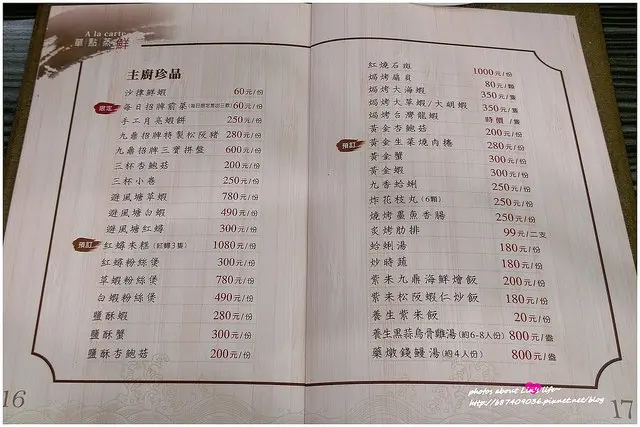 A la carte
單點蒸鮮
主廚珍品
沙律鮮蝦 60元/份
限定 每日招牌前菜(每日限定賣出三款) 60元/份
手工月亮蝦餅 250元/份
九鼎招牌特製松阪豬 280元/份
九鼎招牌三寶拼盤 600元/份
三杯杏鮑菇 200元/份
三杯小卷 250元/份
避風塘草蝦 780元/份
避風塘白蝦 490元/份
避風塘紅蟳 300元/份
預訂 紅蟳米糕(紅蟳3隻) 1080元/份
紅蟳粉絲煲 300元/份
草蝦粉絲煲 780元/份
白蝦粉絲煲 490元/份
鹽酥蝦 280元/份
鹽酥蟹 300元/份
鹽酥杏鮑菇 200元/份
16
紅燒石斑 1000元/份
焗烤扇貝 80元/顆
焗烤大海蝦 350元/隻
焗烤大草蝦/大胡蝦 350元/隻
焗烤台灣龍蝦 時價/隻
黃金杏鮑菇 200元/份
預訂 黃金生菜燒肉捲 280元/份
黃金蟹 300元/份
黃金蝦 300元/份
九香蛤蜊 250元/份
炸花枝丸(6顆) 250元/份
燒烤墨魚香腸 250元/份
炙烤肋排 99元/二支
蛤蜊湯 180元/份
炒時蔬 180元/份
紫米九鼎海鮮燴飯 200元/份
紫米松阪蝦仁炒飯 180元/份
養生紫米飯 20元/份
養生黑蒜烏骨雞湯(約6-8人份) 800元/盅
藥燉錢鰻湯(約4人份) 800元/盅
photos about Lin's life~
http://b87409036.pixnet.net/blog
17